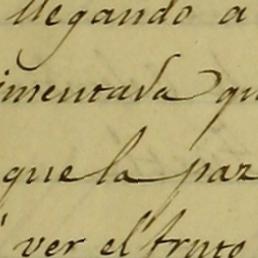 llegando a
imentada qu
que la paz
ver el fruto